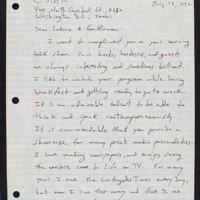 July 13, 1992
400 North Capitol St., #650
Washington D.C., 20001
Dear Ladies & Gentlemen:
I want to compliment you on your morning
talk show. Your hosts, hostesses, and guests
are always interesting and sometimes brilliant.
I like to watch your program while having
breakfast and getting ready to go to work.
It is an admirable talent to be able to
think and speak contemporaneously.
It is commendable that you provide a
showcase for many print media personalities.
I love reading newspapers, and enjoy seeing
the writers come to life on TV. For many
years, I read the Los Angeles Times every day,
but now I live far away and there is no